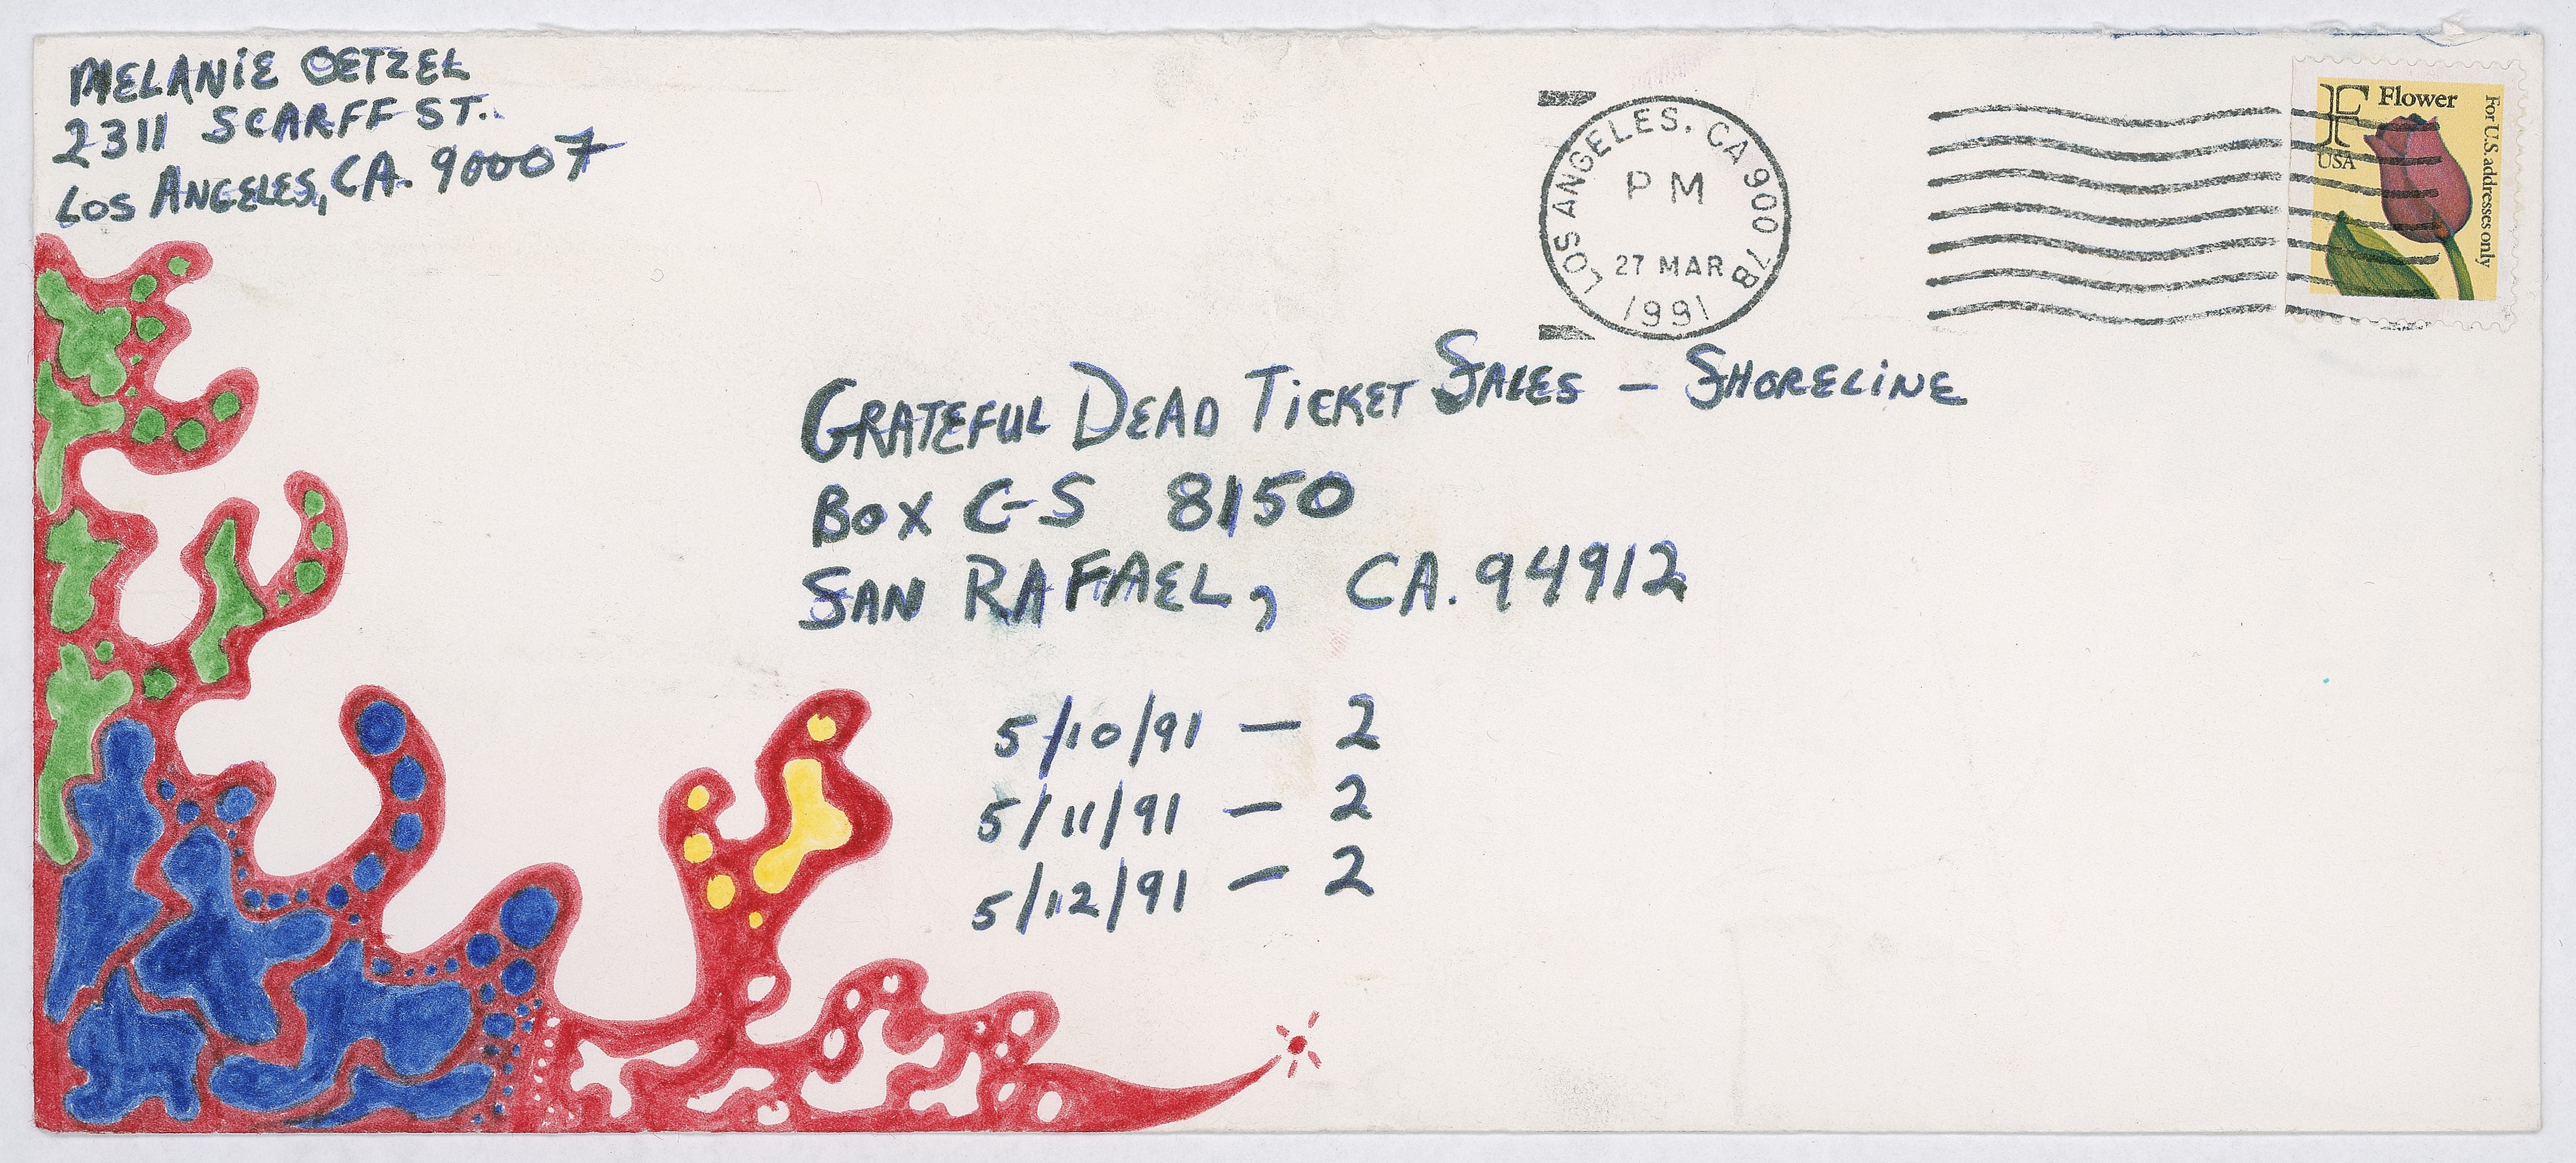 MELANIE OETZEL
2311 SCARFF ST.
LOS ANGELES, CA. 90007
LOS ANGELES, CA 900 7B
PM
27 MAR
1991
F Flower
USA
For U.S. addresses only
GRATEFUL DEAD TICKET SALES - SHORELINE
BOX C-S 8150
SAN RAFAEL, CA. 94912
5/10/91 - 2
5/11/91 - 2
5/12/91 - 2